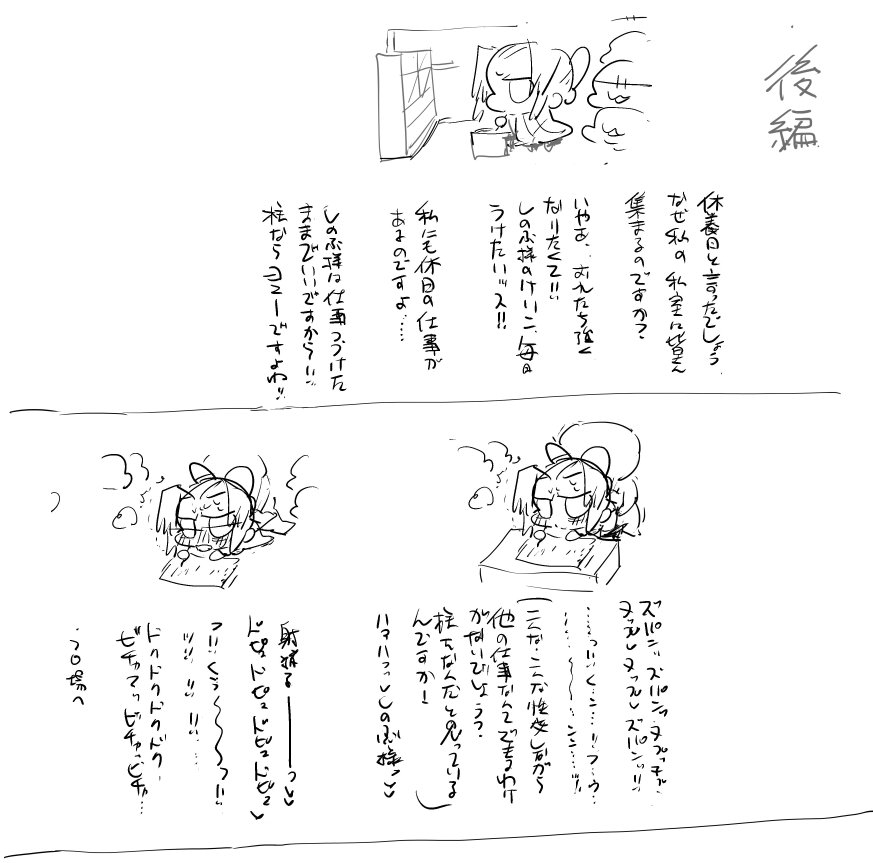 後編
休養日と言ったでしょう
なぜ私の私室に皆さん
集まるのですか?
いやあ、おれたち強く
なりたくて!!
しのぶ様のけいこ、毎日
うけたいッス!!
私にも休日の仕事が
あるのですよ……
しのぶ様は仕事つづけた
ままでいいですから!!
柱ならヨユーですよね!!
ズパンッズパンッ
ズパンッ!!
(こんな…こんな性交しながら
他の仕事なんてできるわけ
がないでしょう?
柱をなんだと思っている
んですか!)
ハァハァっしのぶ様っ♡♡
射精る――っ♡♡
ドピュドピュドピュドピュ♡
ドクドクドクドク
ビチャッビチャッビチャ…
・フロ場へ